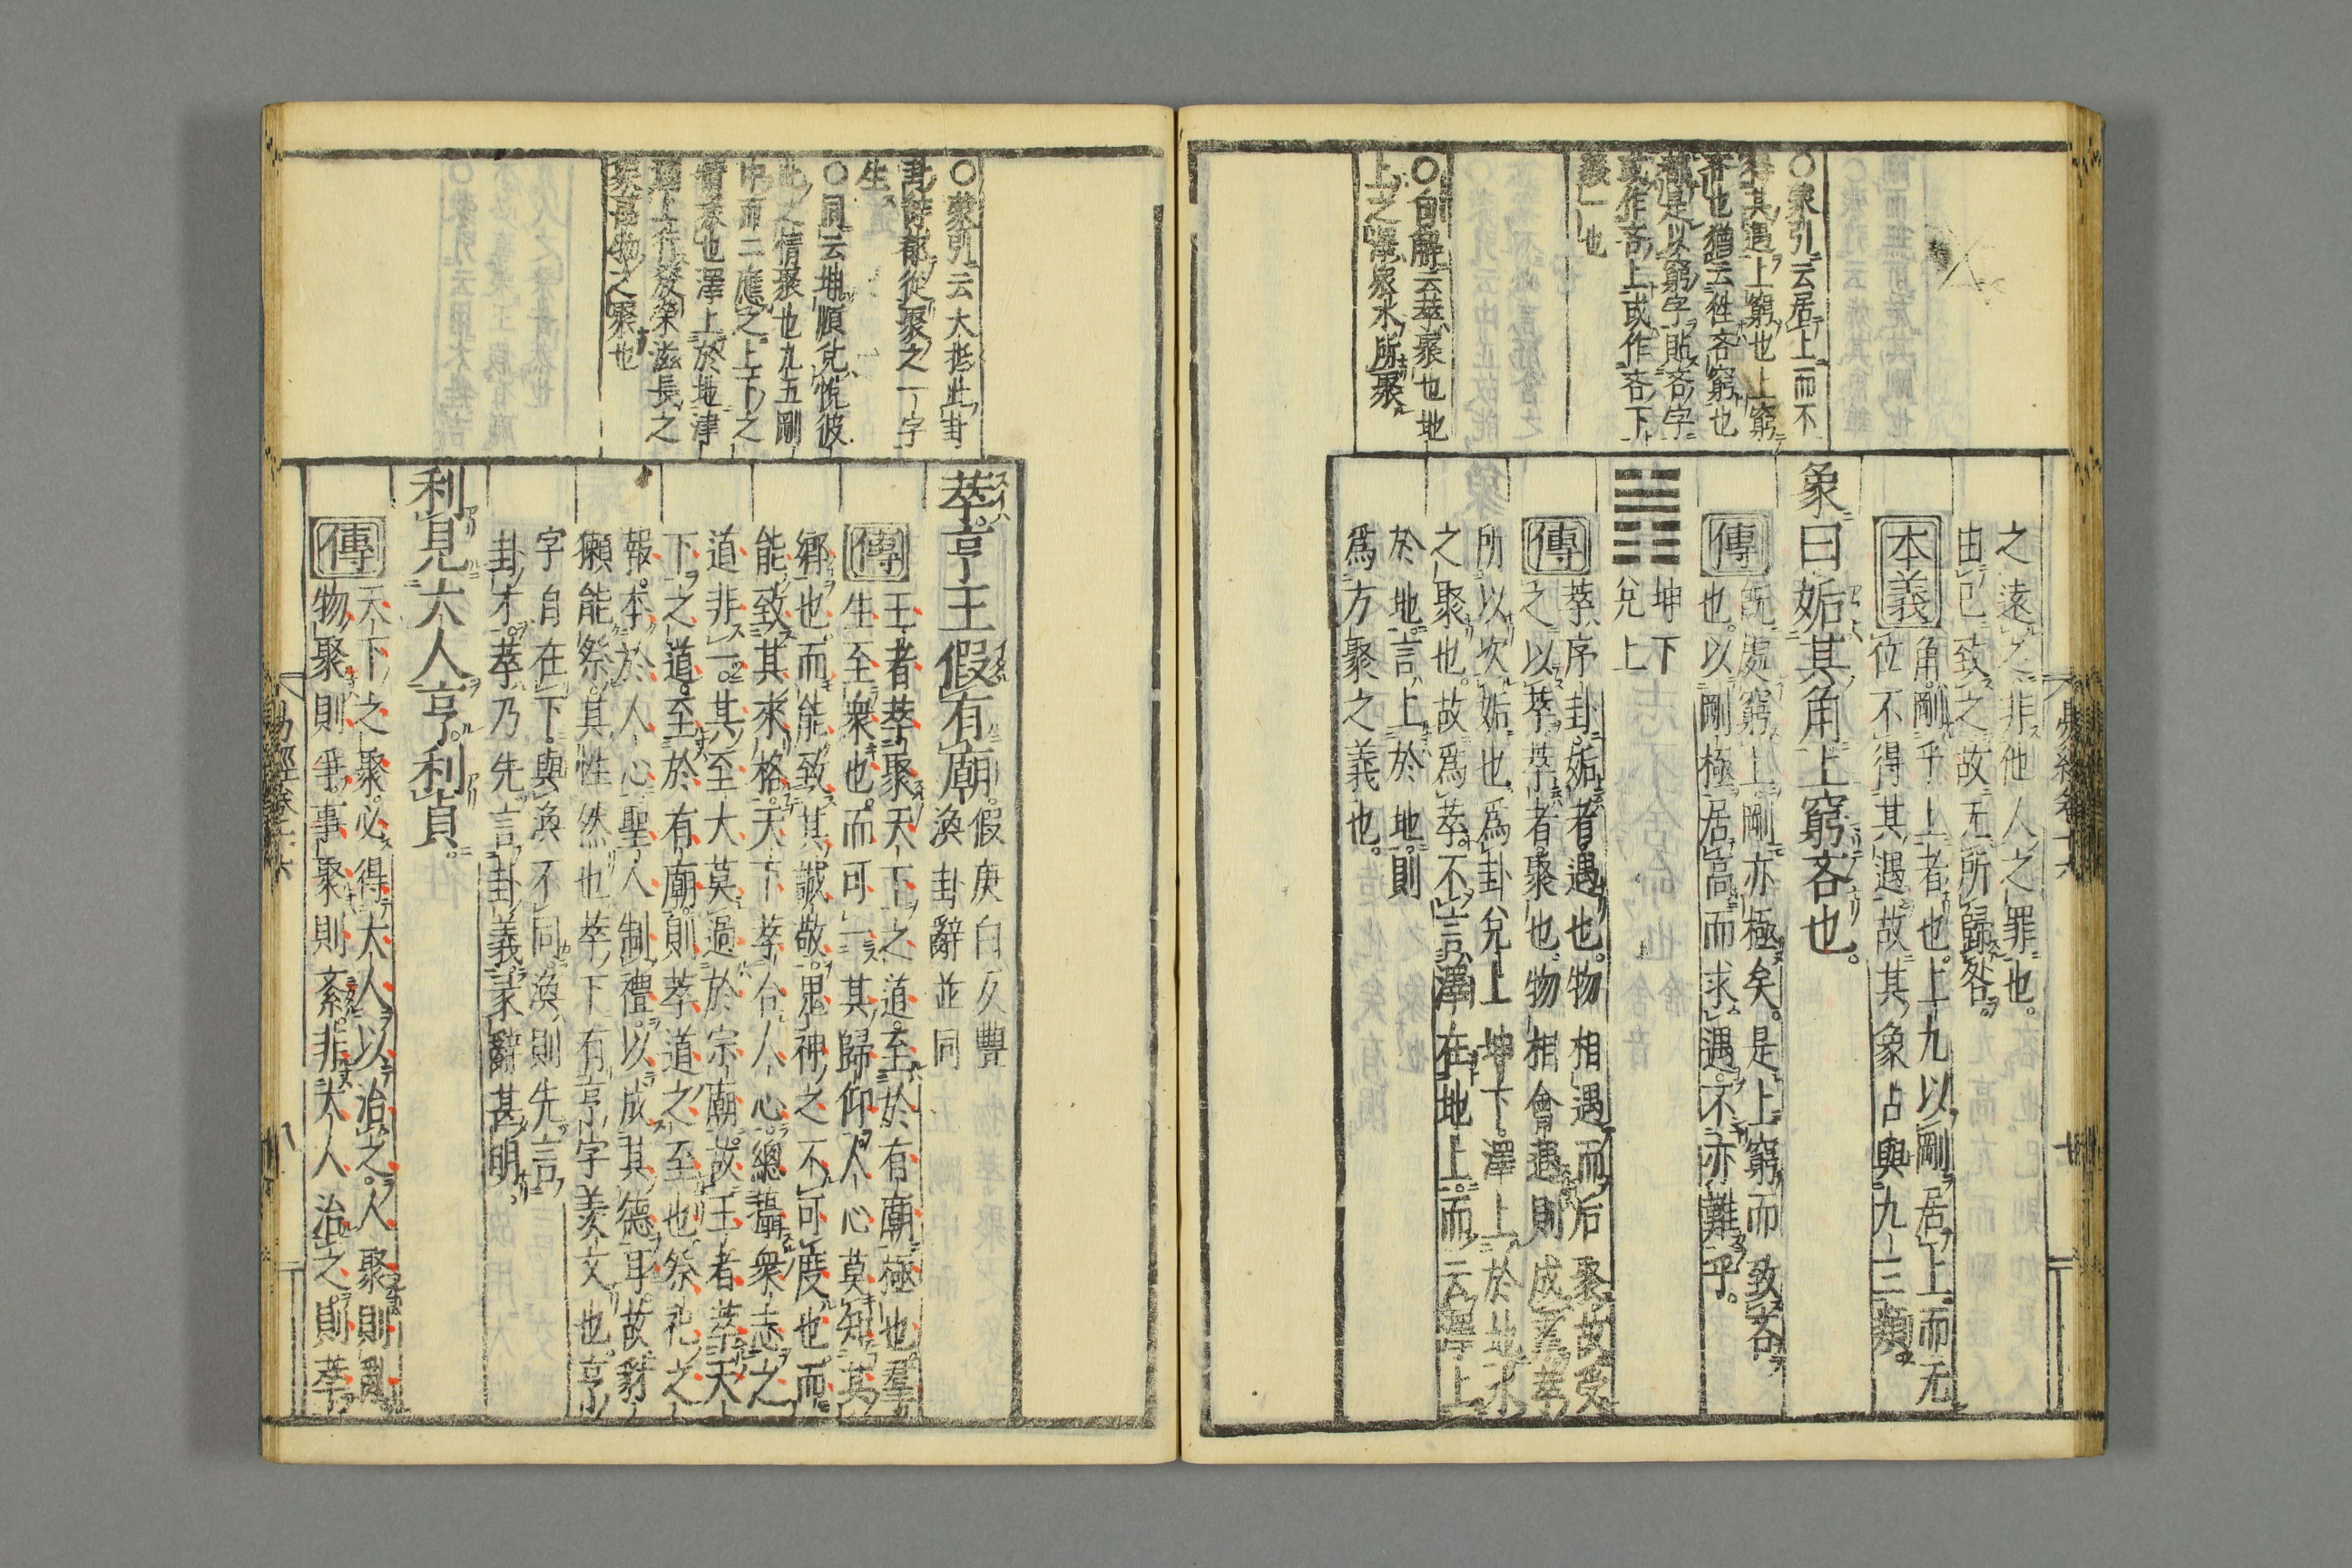 之遠之非他人之罪也。
由己致之故无所歸咎。
本義
角剛乎上者也。上九以剛居上而无
位不得其遇故其象占與九三類
象曰姤其角上窮吝也。
傳
既處窮上。剛亦極矣。是上窮而致吝
也。以剛極居高而求遇。不亦難乎。
坤下
兌上
傳
萃序卦。姤者遇也。物相遇而后聚故受
之以萃。萃者聚也。物相會遇則成羣萃
所以次姤也為卦兌上坤下。澤上於地水
之聚也。故為萃。不言澤在地上。而云澤上
於地。言上於地。則
為方聚之義也。
○蒙引云居上而不
得其遇上窮也上窮
吝也猶云姓吝窮也
都是以窮字貼吝字
或作吝上或作吝下
義一也
○句解云萃聚也地
上之澤衆水所聚
萃。亨王假有廟。
假庚白反豐
渙卦辭並同
傳
王者萃聚天下之道。至於有廟極也。羣
生至衆也。而可一其歸仰。人心莫知其
鄉也。而能致其誠敬。鬼神之不可度也。而
能致其來格。天下萃合人心。總攝衆志之
道非一。其至大莫過於宗廟。故王者萃天
下之道。至於有廟。則萃道之至也。祭祀之
報。本於人心聖人制禮。以成其德耳。故豺
獺能祭。其性然也萃下有亨字羨文也。亨
字自在下。與渙不同。渙則先言
卦才。萃乃先言卦義。彖辭甚明。
利見大人亨。利貞。
傳
天下之聚。必得大人以治之。人聚則亂。
物聚則爭。事聚則紊。非大人治之。則萃
○蒙引云大抵此卦
諸爻都從聚之一字
生
○同云坤順兌悅彼
此之情聚也九五剛
中而二應之上下之
情聚也澤上於地津
潤上行發榮滋長之
象萬物之聚也